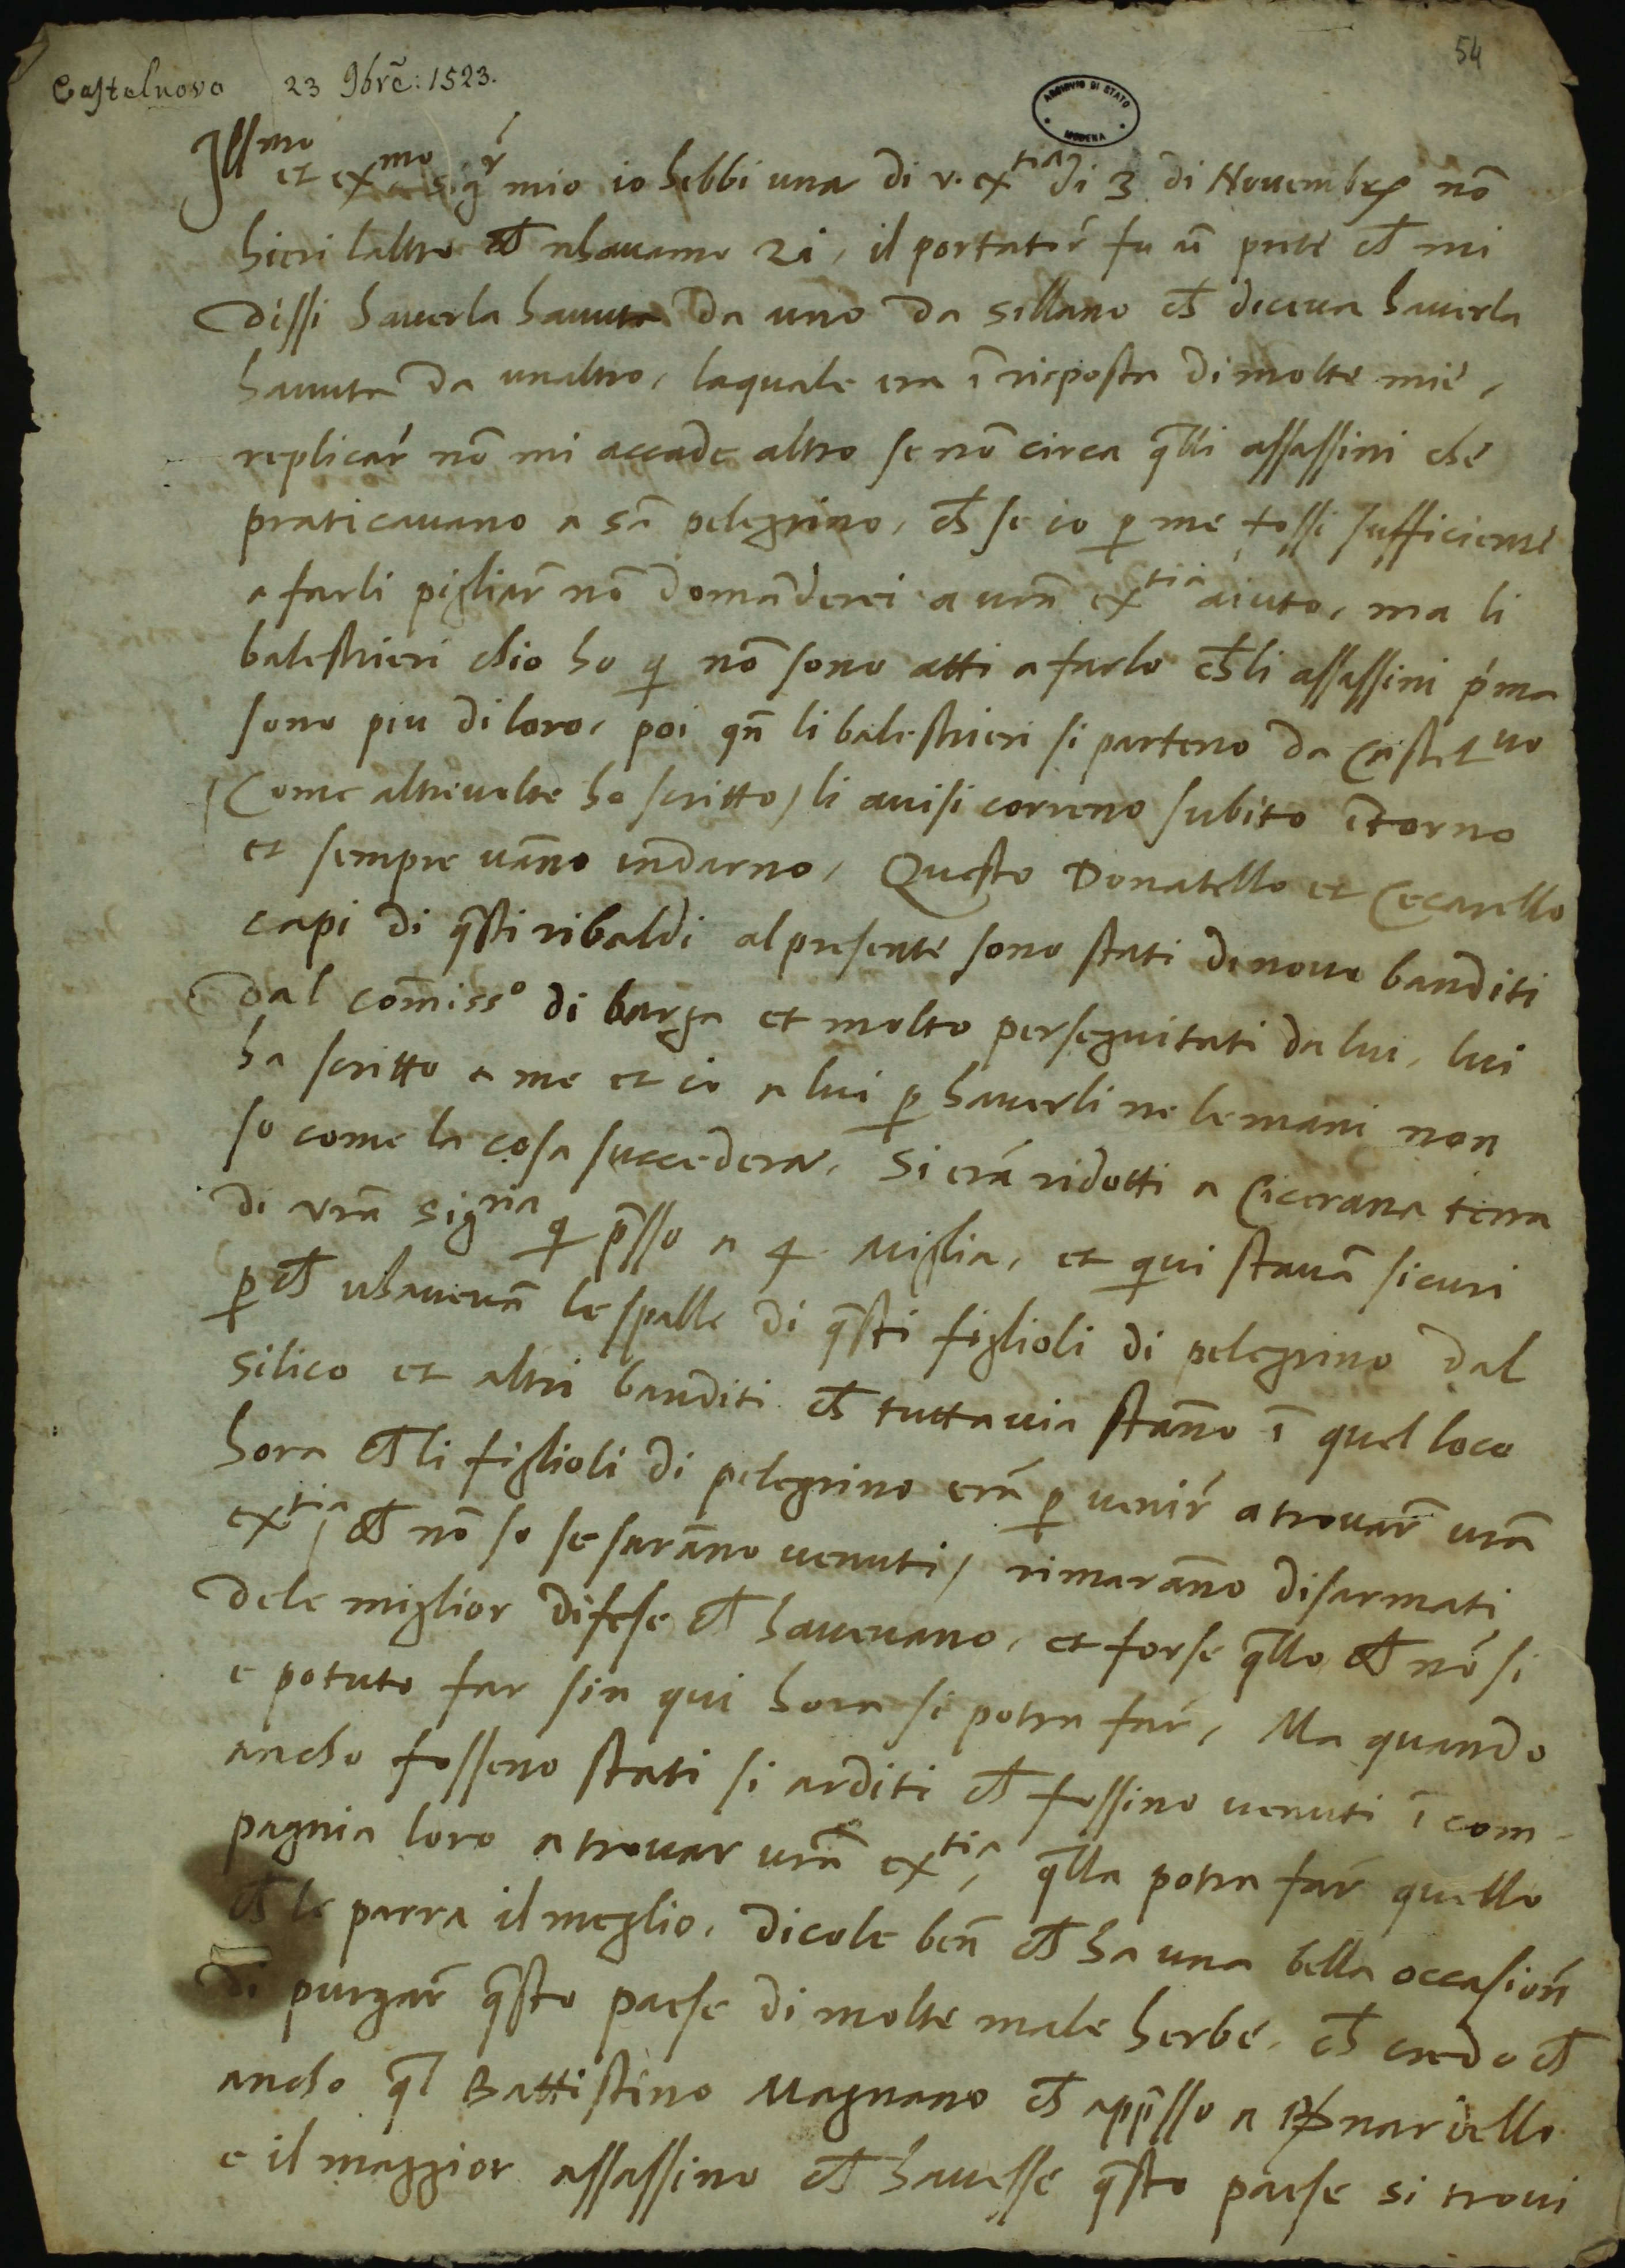 54
Castelnovo 23 9brẽ: 1523.
ARCHIVIO DI STATO
MODENA
Illmo et exmo sigr mio io hebbi una di v. extia di 3 di Novembre nõ
hieri laltro ch̃ nhavamo 21, il portator fu ũ prete ch̃ mi
dissi haverla havuta da uno da sillano ch̃ diceva haverla
havuta da unaltro, laquale era ĩ risposta di molte mie,
replicar nõ mi accade altro se nõ circa q̃lli assassini che
praticavano a sã pelegrino, ch̃ se io p me fossi sufficiente
a farli pigliar nõ domãderei a vrã extia aiuto, ma li
balestrieri chio ho q nõ sono atti a farlo ch̃ li assassini pma
sono piu di loro, poi qñ li balestrieri si parteno da Castel no
(Come altrevolte ho scritto) li avisi correno subito ĩtorno
et sempre vãno indarno, Questo Donatello et Cecarello
capi di q̃sti ribaldi al presente sono stati de novo banditi
dal com̃isso di barga et molto perseguitati da lui, lui
ha scritto a me et io a lui p haverli ne le mani non
so come la cosa succedera, Si erã ridotti a Cicerana terra
di vrã sigria q p̃sso a 4 Miglia, et quivi stavã sicuri
p ch̃ vhavevã le spalle di q̃sti figlioli di pelegrino dal
silico et altri banditi ch̃ tuttavia stãno ĩ quel loco
hora ch̃ li figlioli di pelegrino erã p venir a trovar vrã
extia, ch̃ nõ so se sarãno venuti, rimarãno disarmati
dele miglior difese ch̃ havevano, et forse q̃llo ch̃ nõ si
e potuto far sin qui hora si potra far, Ma quando
ancho fosseno stati si arditi ch̃ fossino venuti ĩ com-
pagnia loro a trovar vrã extia, q̃lla potra far quello
ch̃ le parra il meglio, dicole beñ ch̃ ha una bella occasioñ
di purgar q̃sto paese di molte male herbe, ch̃ credo ch̃
ancho q̃l Battistino Magnano ch̃ app̃sso a nardello
e il maggior assassino ch̃ havesse q̃sto paese si trovi